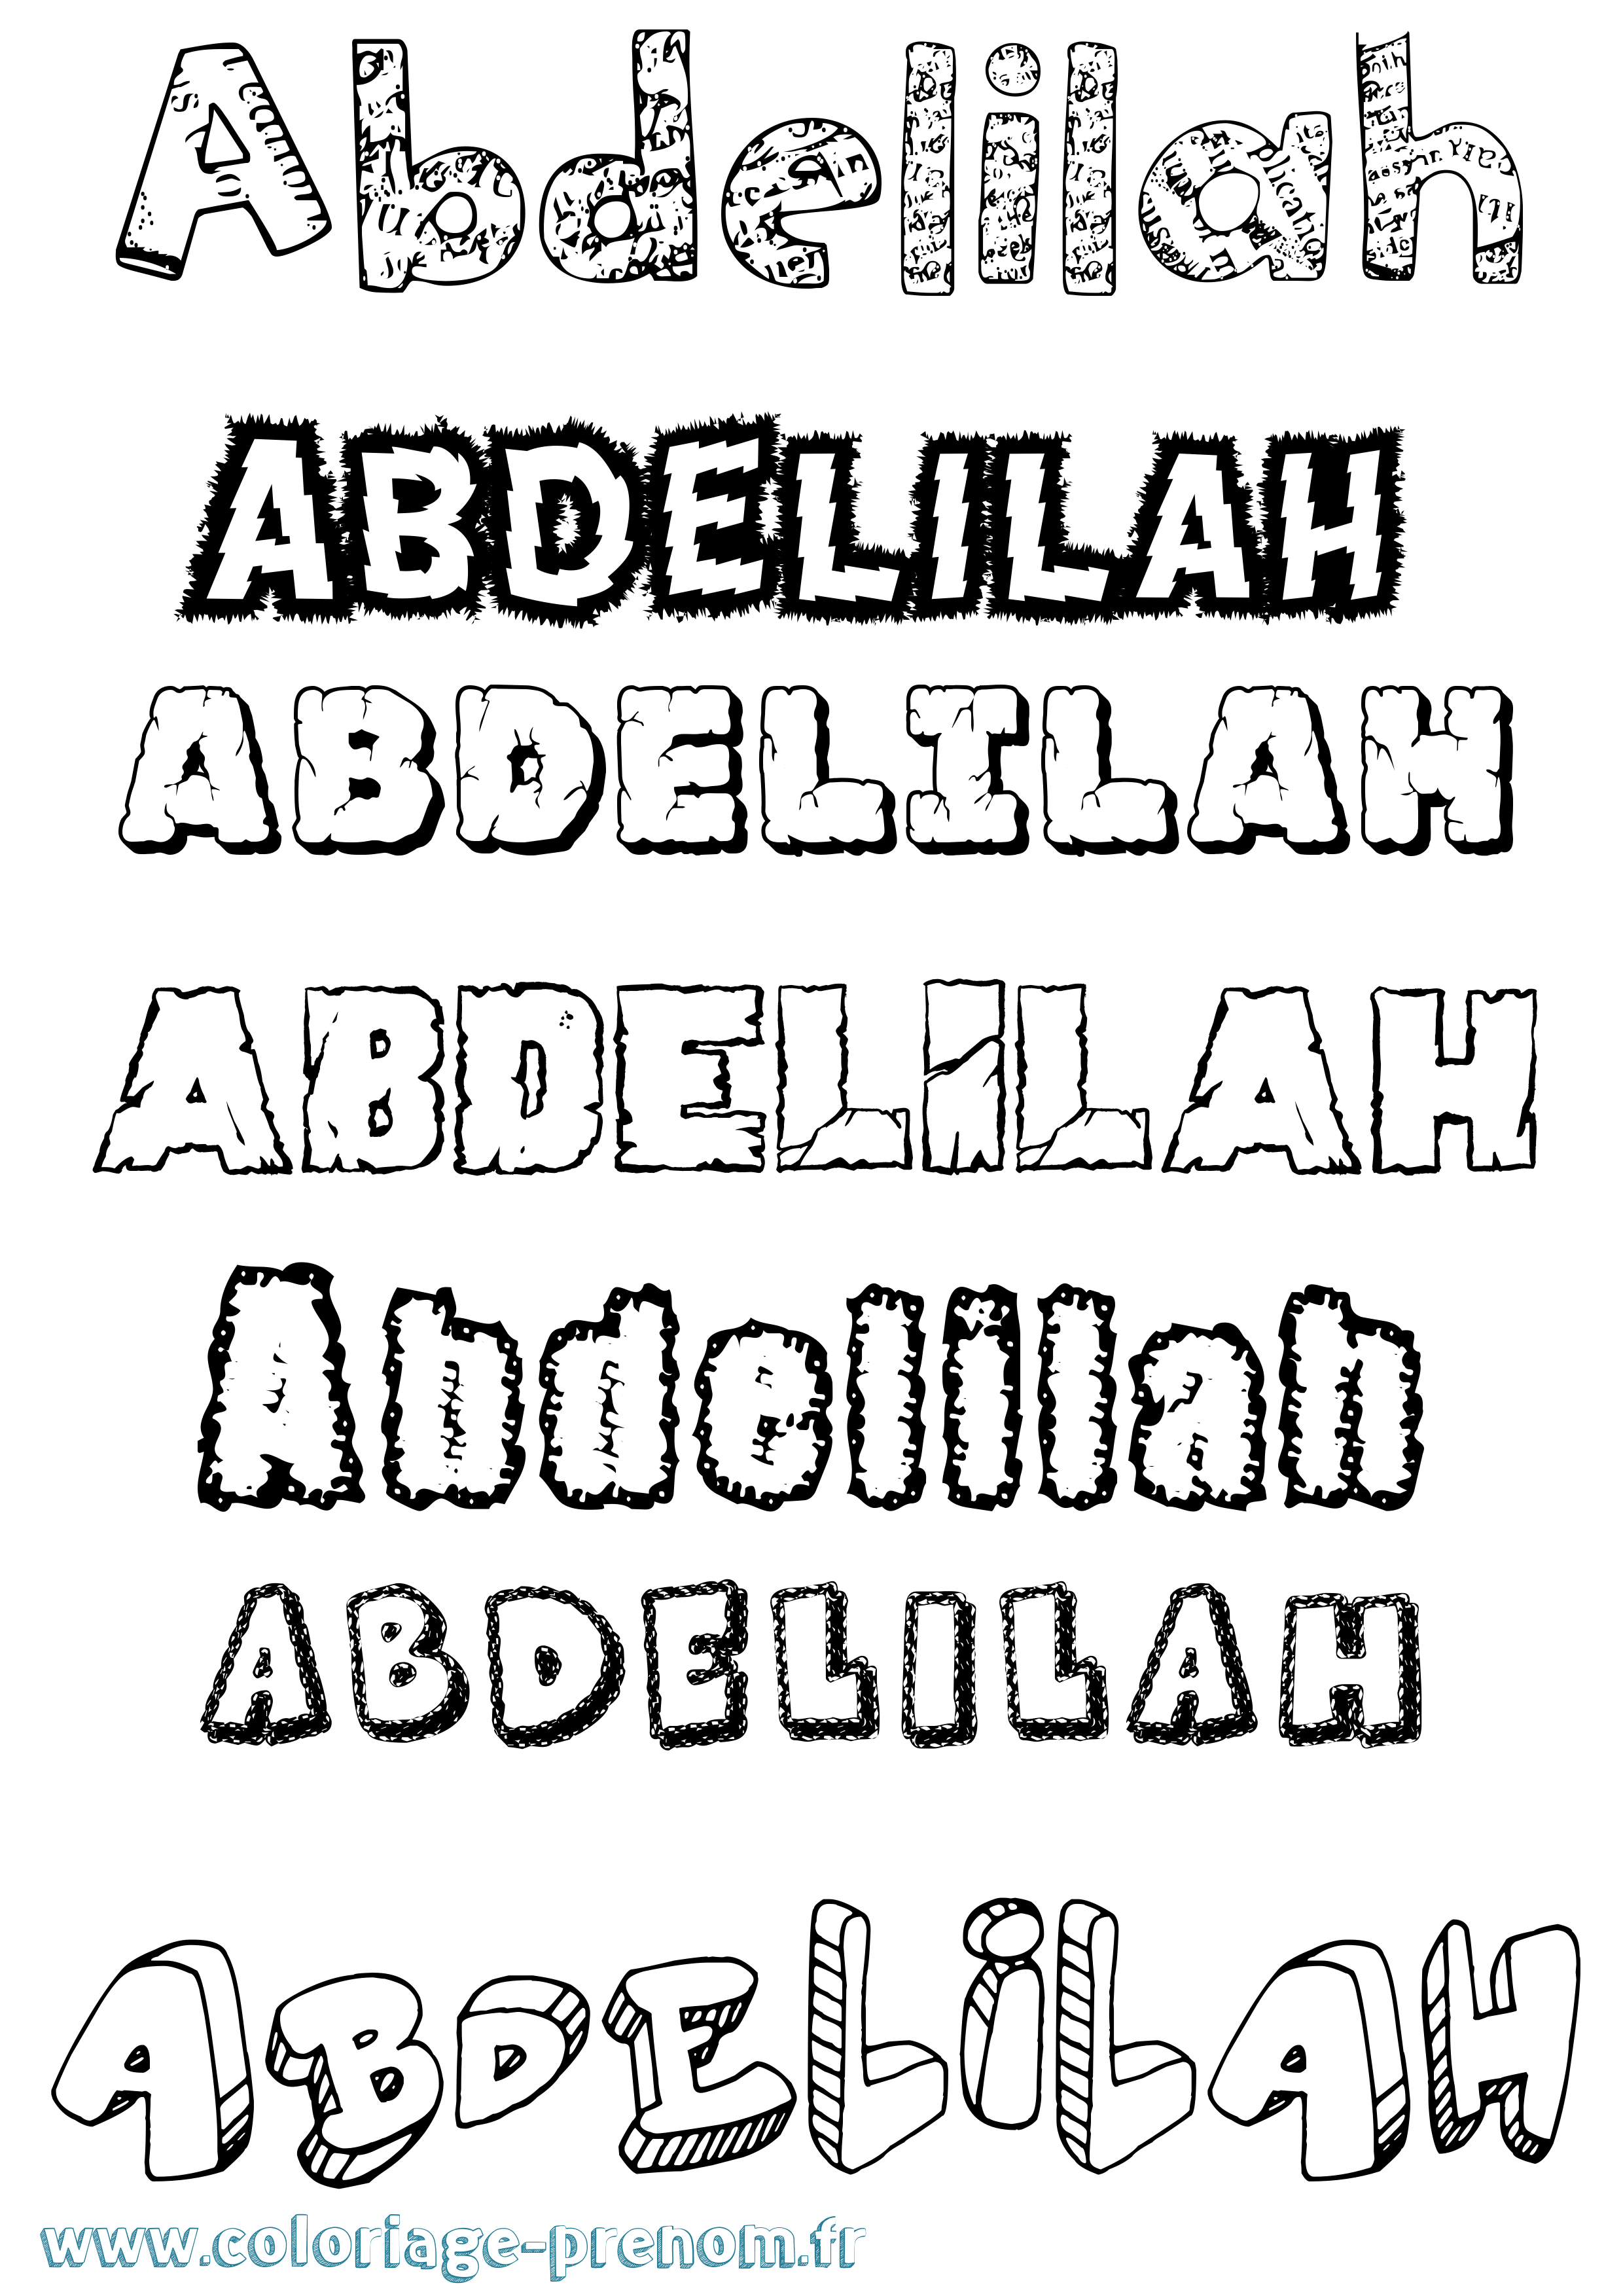 Abdelilah
ABDELILAH
ABDELILAH
ABDELiLAH
Abdelilah
ABDELILAH
ABDELiLAH
www.coloriage-prenom.fr